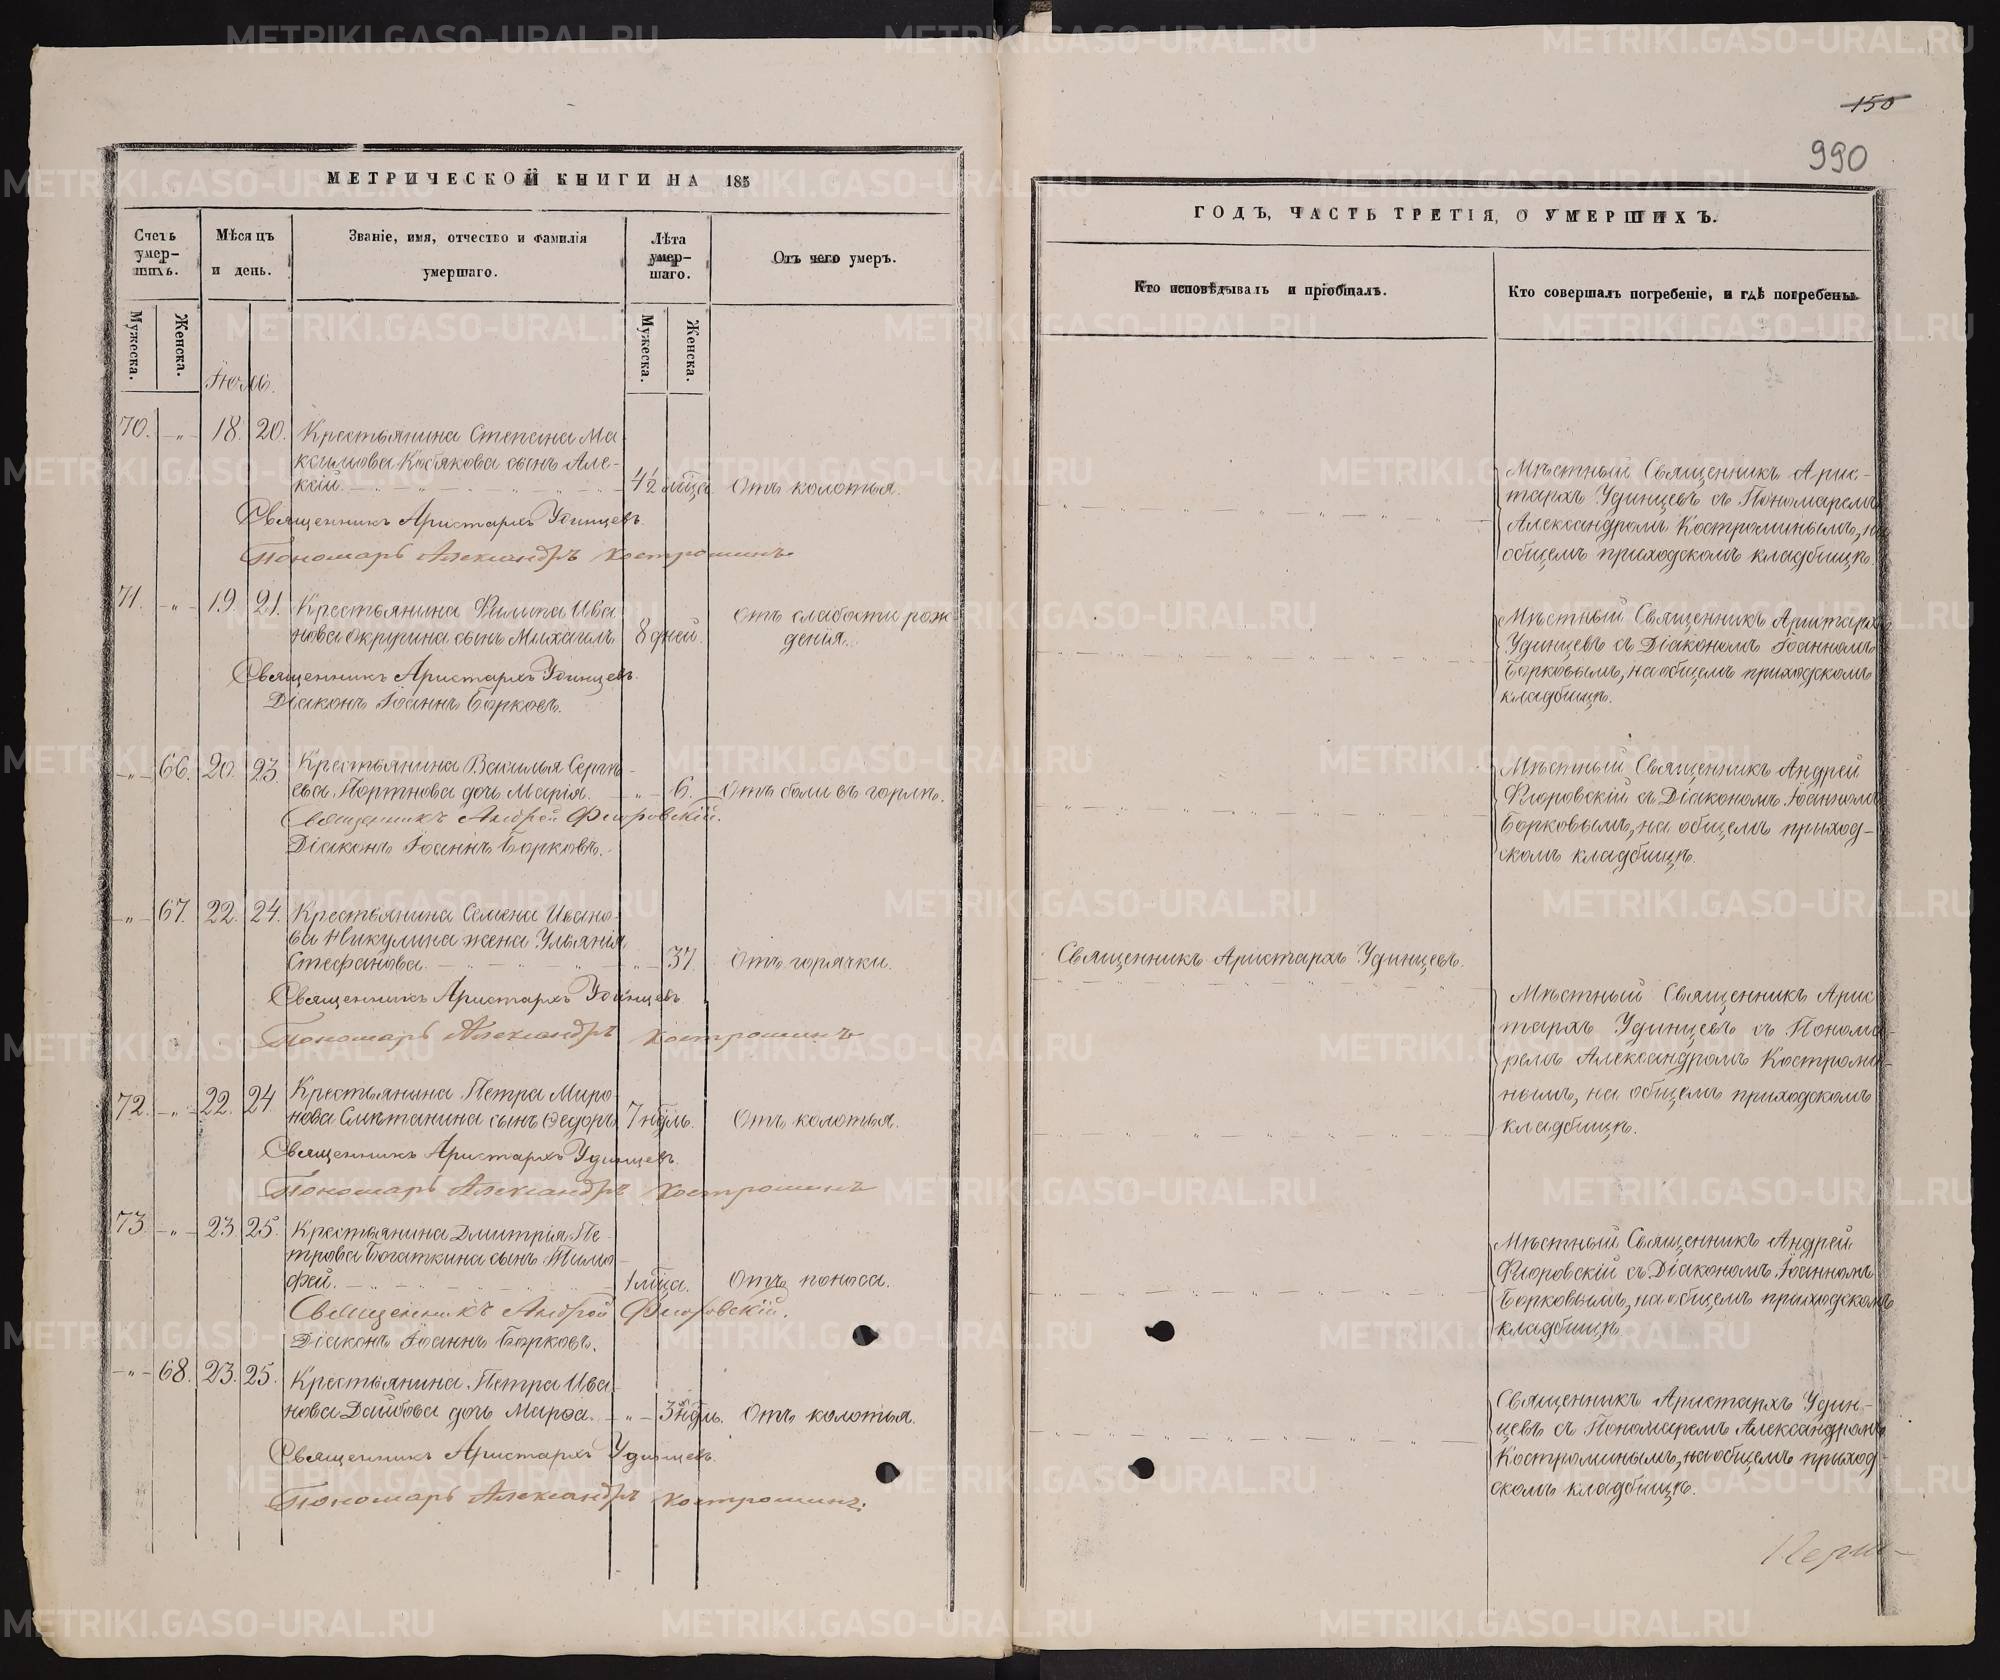 150
990
МЕТРИЧЕСКОЙ КНИГИ НА 185
ГОДЪ, ЧАСТЬ ТРЕТІЯ, О УМЕРШИХЪ.
Счетъ умер-шихъ.
Мѣсяцъ и день.
Званіе, имя, отчество и фамилія умершаго.
Лѣта умер-шаго.
Отъ чего умеръ.
Кто исповѣдывалъ и пріобщалъ.
Кто совершалъ погребеніе, и гдѣ погребены.
Мужеска.
Женска.
Мужеска.
Женска.
70. -"- 18. 20. Крестьянина Степана Ма-
ксимова Кобякова сынъ Але-
ксій. 4½ мѣца. Отъ колотья.
Священникъ Аристархъ Удинцевъ.
Пономарь Александръ Костроминъ
Мѣстный Священникъ Арис-
тархъ Удинцевъ съ Пономаремъ
Александромъ Костроминымъ, на
общемъ приходскомъ кладбищѣ.
71. -"- 19. 21. Крестьянина Филипа Ива
нова Окружина сынъ Михаилъ. 8 дней. Отъ слабости рож
денія.
Священникъ Аристархъ Удинцевъ.
Діаконъ Іоаннъ Борковъ.
Мѣстный Священникъ Аристархъ
Удинцевъ съ Діакономъ Іоанномъ
Борковымъ, на общемъ приходскомъ
кладбищѣ.
-"- 66. 20. 23. Крестьянина Василья Сергѣ-
ева Портнова дочь Марія. -"- 6. Отъ боли въ горлѣ.
Священникъ Андрей Флоровскій.
Діаконъ Іоаннъ Борковъ.
Мѣстный Священникъ Андрей
Флоровскій съ Діакономъ Іоанномъ
Борковымъ, на общемъ приход-
скомъ кладбищѣ.
-"- 67. 22. 24. Крестьянина Семена Ивано-
ва Никулина жена Ульянія
Стефанова. -"- 37. Отъ горячки.
Священникъ Аристархъ Удинцевъ.
Священникъ Аристархъ Удинцевъ
Пономарь Александръ Костроминъ
Мѣстный Священникъ Арис
тархъ Удинцевъ съ Понома-
ремъ Александромъ Костроми-
нымъ, на общемъ приходскомъ
кладбищѣ.
72. -"- 22. 24. Крестьянина Петра Миро
нова Смѣтанина сынъ Ѳедоръ 7 ндѣль. Отъ колотья.
Священникъ Аристархъ Удинцевъ.
Пономарь Александръ Костроминъ
73. -"- 23. 25. Крестьянина Дмитрія Пе-
трова Богаткина сынъ Тимо-
фей. 1 мѣца. Отъ поноса.
Священникъ Андрей Флоровскій.
Діаконъ Іоаннъ Борковъ.
Мѣстный Священникъ Андрей
Флоровскій съ Діакономъ Іоанномъ
Борковымъ, на общемъ приходскомъ
кладбищѣ
-"- 68. 23. 25. Крестьянина Петра Ива-
нова дочь Марѳа. -"- 3 ндѣль. Отъ колотья.
Священникъ Аристархъ Удинцевъ.
Пономарь Александръ Костроминъ.
Священникъ Аристархъ Удин-
цевъ съ Пономаремъ Александромъ
Костроминымъ, на общемъ приход-
скомъ кладбищѣ.
METRIKI.GASO-URAL.RU